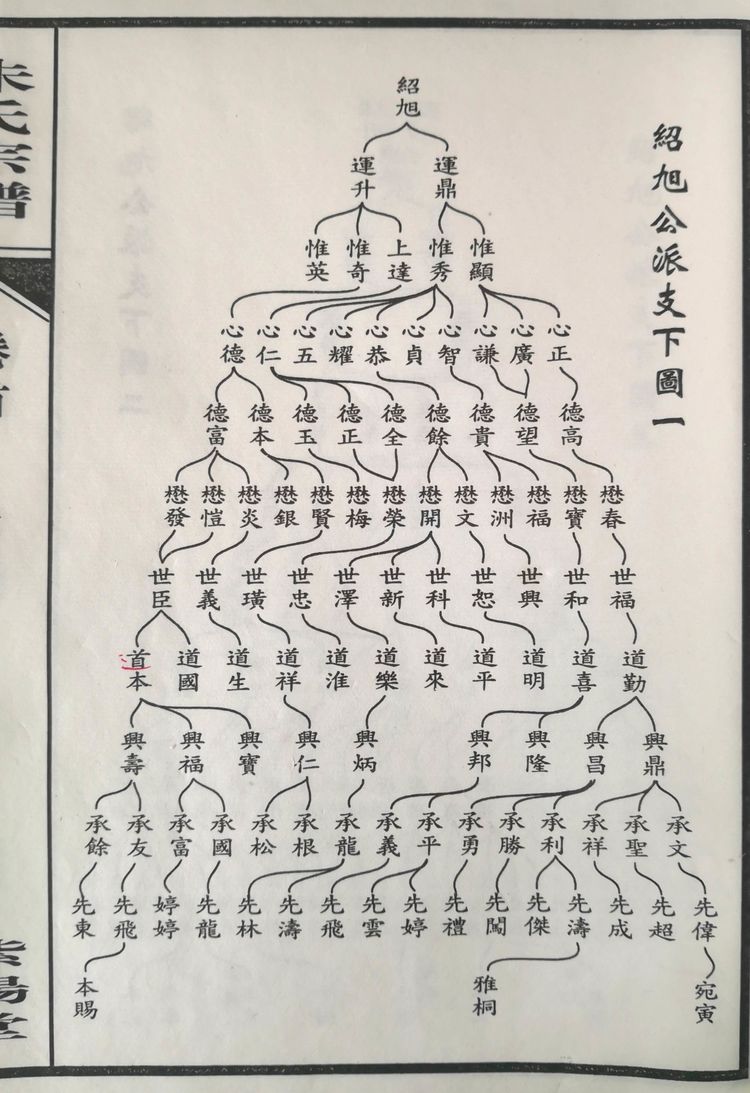 紹旭公派支下圖一
紹旭
運鼎 運升
惟顯 惟秀 上達 惟奇 惟英
心正 心廣 心謙 心智 心貞 心恭 心耀 心五 心仁 心德
德高 德望 德貴 德餘 德全 德正 德玉 德本 德富
懋春 懋寶 懋福 懋洲 懋文 懋開 懋榮 懋梅 懋賢 懋銀 懋炎 懋愷 懋發
世福 世和 世興 世恕 世科 世新 世澤 世忠 世璜 世義 世臣
道勤 道喜 道明 道平 道來 道樂 道淮 道祥 道生 道國 首本
興鼎 興昌 興隆 興邦 興炳 興仁 興寶 興福 興壽
承文 承聖 承祥 承利 承勝 承勇 承平 承義 承龍 承根 承松 承國 承富 承友 承餘
先偉 先超 先成 先濤 先傑 先闖 先禮 先婷 先雲 先飛 先濤 先林 先龍 婷婷 先飛 先東
宛寅 雅桐 本賜
朱氏宗譜
卷首
紫陽堂